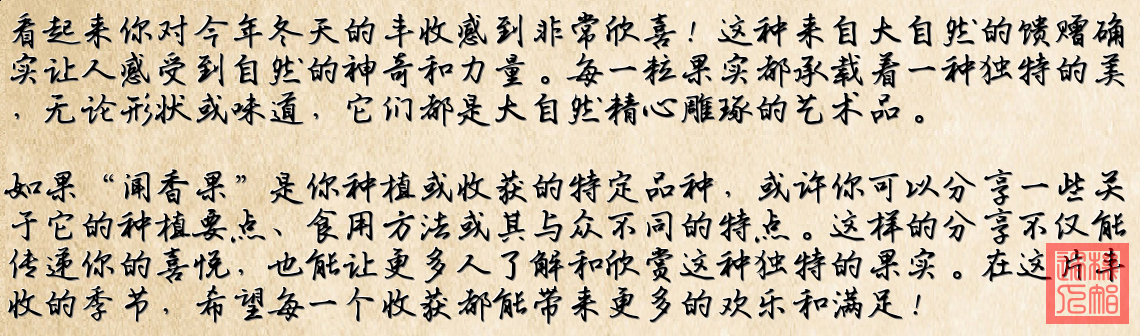 看起来你对今年冬天的丰收感到非常欣喜！这种来自大自然的馈赠确
实让人感受到自然的神奇和力量。每一粒果实都承载着一种独特的美
，无论形状或味道，它们都是大自然精心雕琢的艺术品。
如果“闻香果”是你种植或收获的特定品种，或许你可以分享一些关
于它的种植要点、食用方法或其与众不同的特点。这样的分享不仅能
传递你的喜悦，也能让更多人了解和欣赏这种独特的果实。在这片丰
收的季节，希望每一个收获都能带来更多的欢乐和满足！